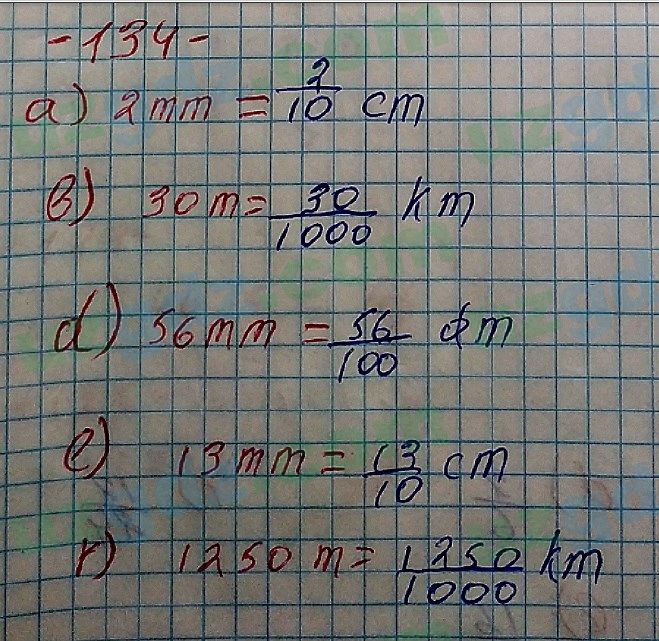 -134-
a) 2mm = 2/10 cm
b) 30m = 30/1000 km
d) 56mm = 56/100 dm
e) 13mm = 13/10 cm
r) 1250m = 1250/1000 km